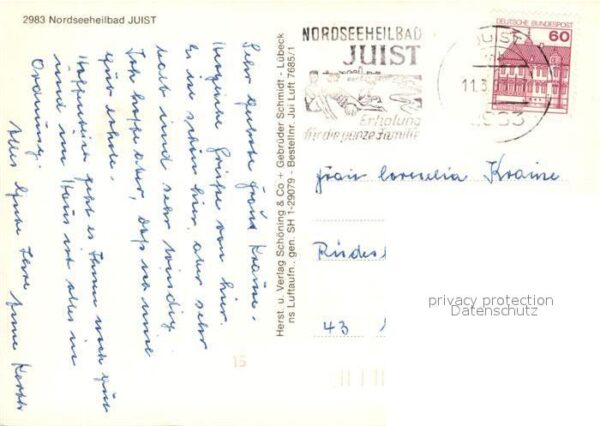 2983 Nordseeheilbad JUIST
Sehr geehrte Frau Krause.
Herzliche Grüße von hier.
Es ist schön hier, aber sehr
kalt und sehr windig.
Ich hoffe aber, daß ich eine
gute
Hoffentlich geht es Ihnen auch gut
und im Haus ist alles in
Ordnung.
Alles Gute Ihre Anne
Herst. u. Verlag Schöning & Co + Gebrüder Schmidt - Lübeck
ns Luftaufn. gen. SH 1-29079 - Bestellnr Jui Luft 7685/1
NORDSEEHEILBAD
JUIST
Erholung
für die ganze Familie
JUIST
11.3.
2983
DEUTSCHE BUNDESPOST
60
Frau Cornelia Krause
43
15
privacy protection
Datenschutz